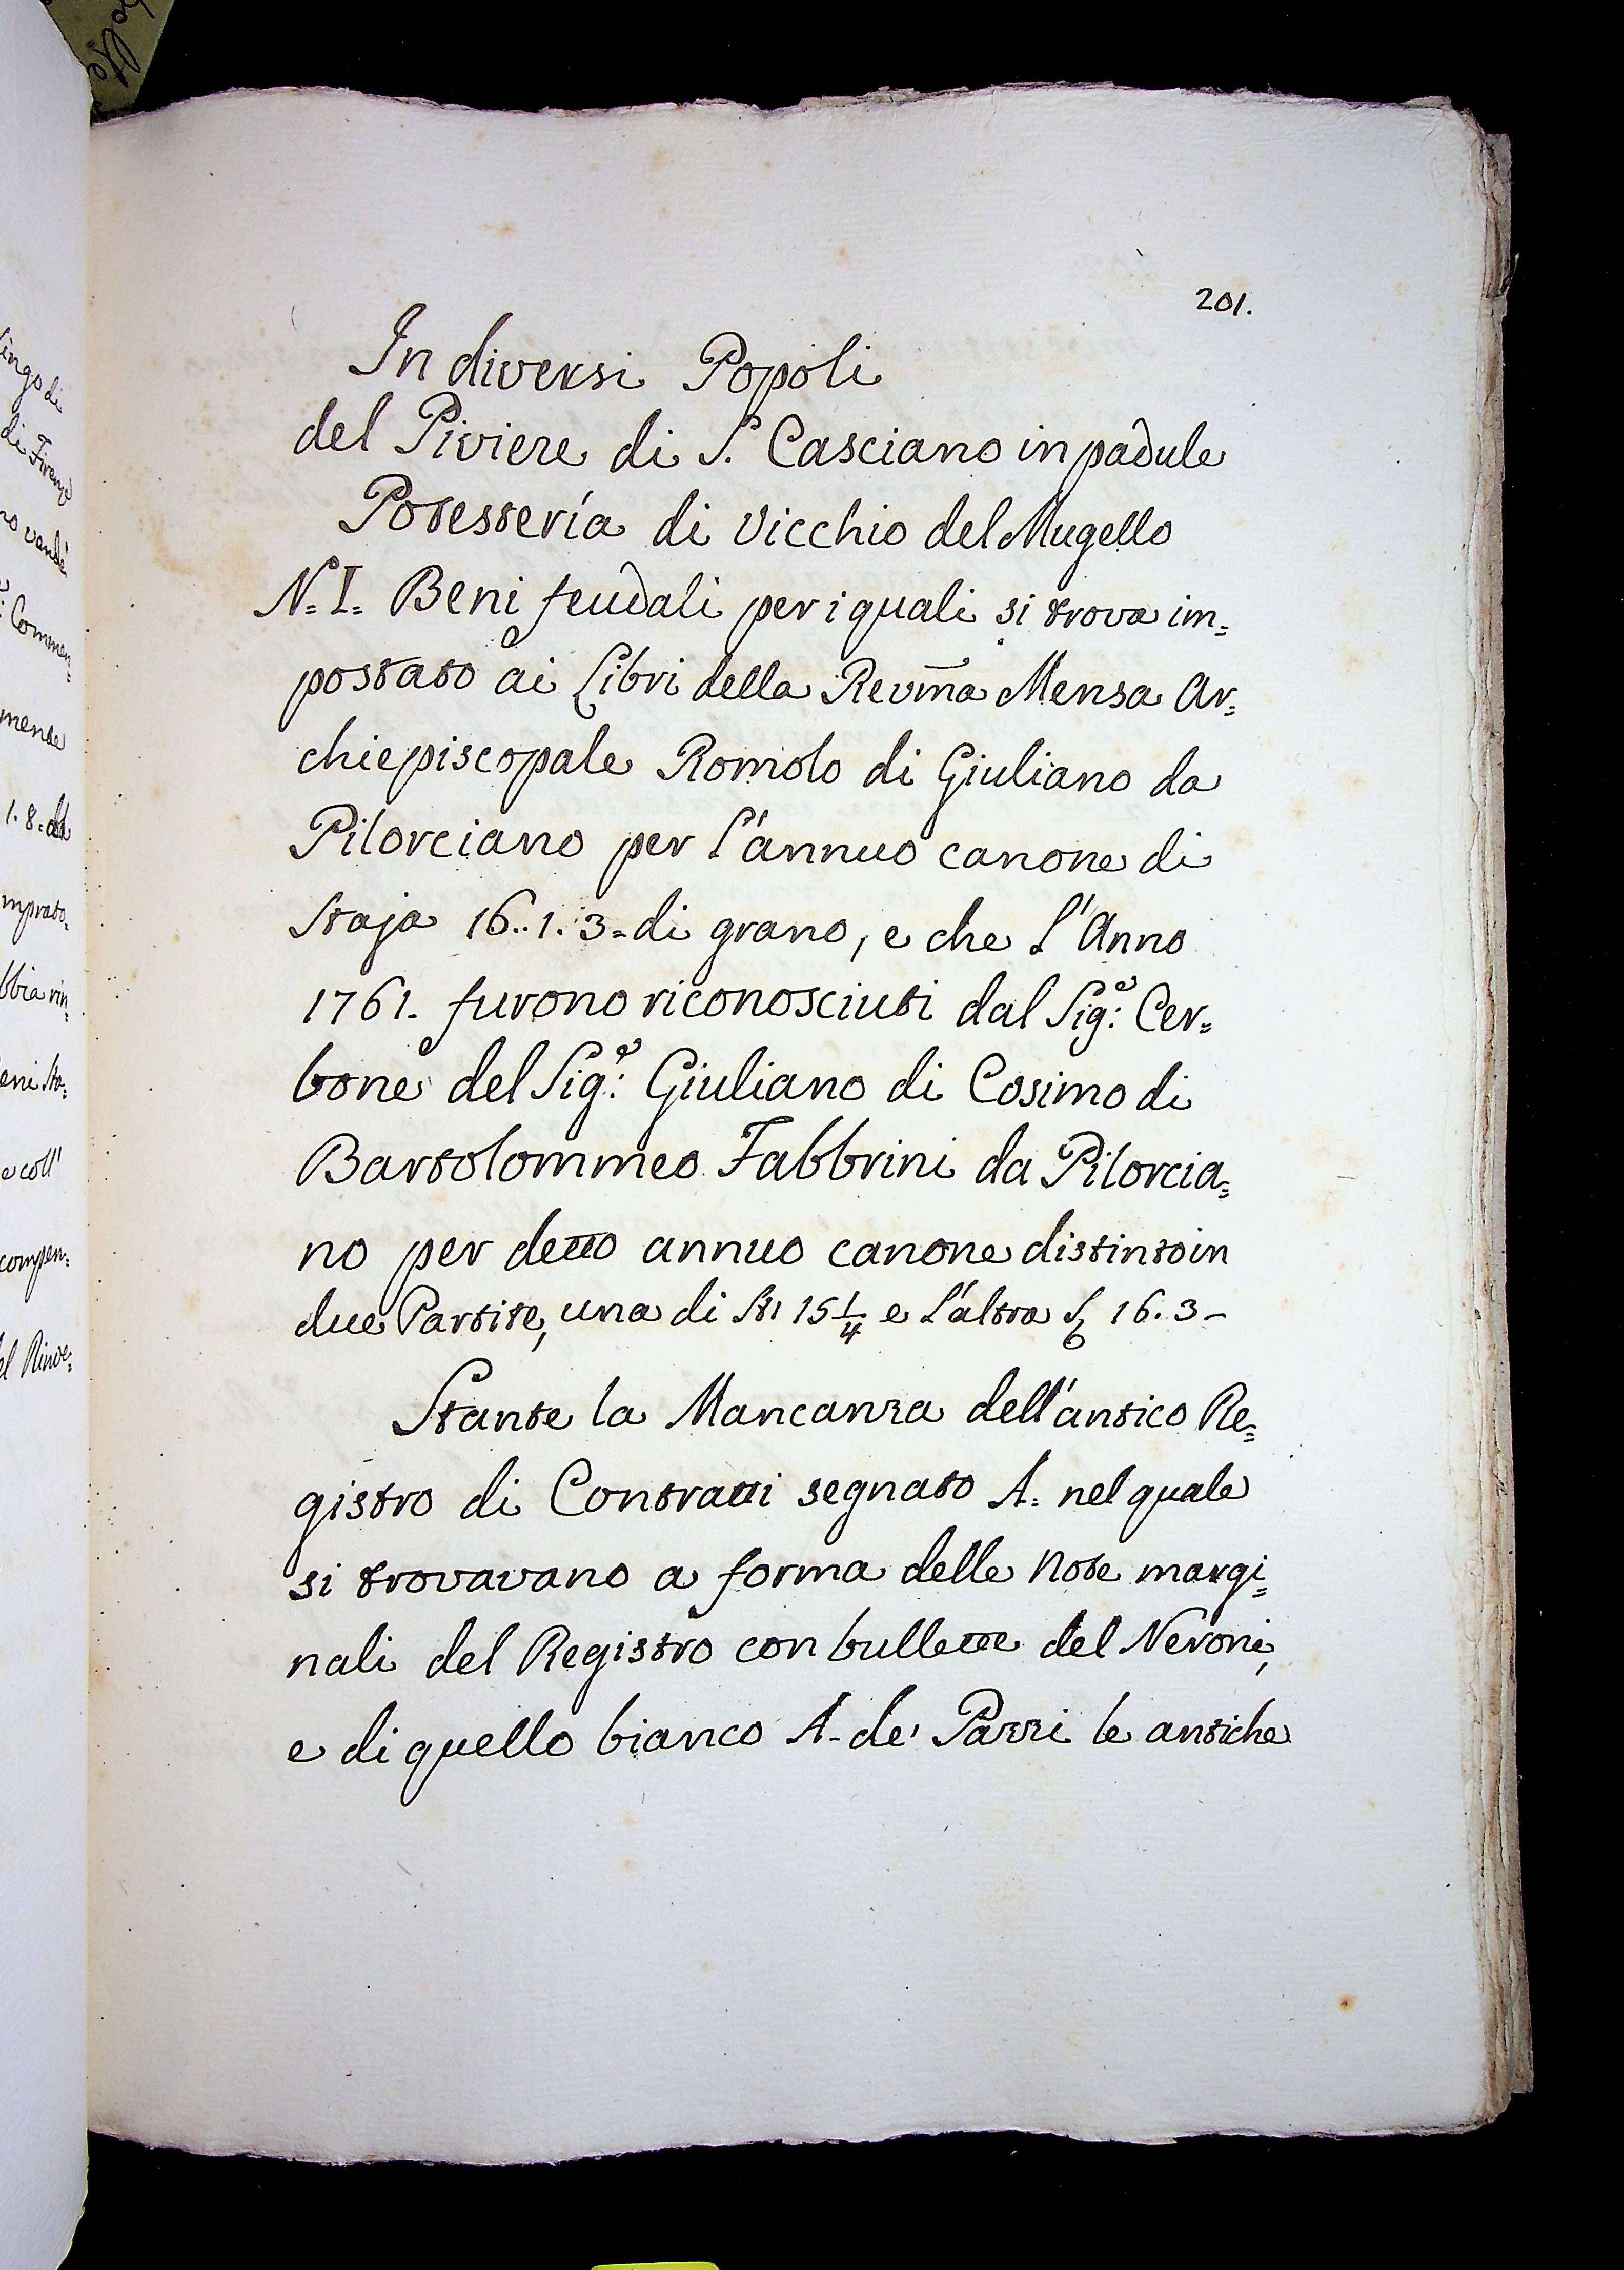 201.
In diversi Popoli
del Piviere di S. Casciano in padule
Potesteria di Vicchio del Mugello
N.= I.= Beni feudali per i quali si trova im=
postato ai Libri della Revm̃a Mensa Ar=
chiepiscopale Romolo di Giuliano da
Pilorciano per l'annuo canone di
Staja 16..1.3= di grano, e che l'Anno
1761. furono riconosciuti dal Sig:e Cer=
bone del Sig:e Giuliano di Cosimo di
Bartolommeo Fabbrini da Pilorcia=
no per detto annuo canone distinto in
due Partite, una di St 15 1/4 e l'altra 16.3-
Stante la Mancanza dell'antico Re=
gistro di Contratti segnato A= nel quale
si trovavano a forma delle Note margi=
nali del Registro con bullette del Neroni,
e di quello bianco A- de' Pazzi le antiche
ingo di
di Firenze
no vendè
Commen=
mente
1.8=
mprato=
bbia rin=
eni Sto=
e coll'
compen=
el Rinve=